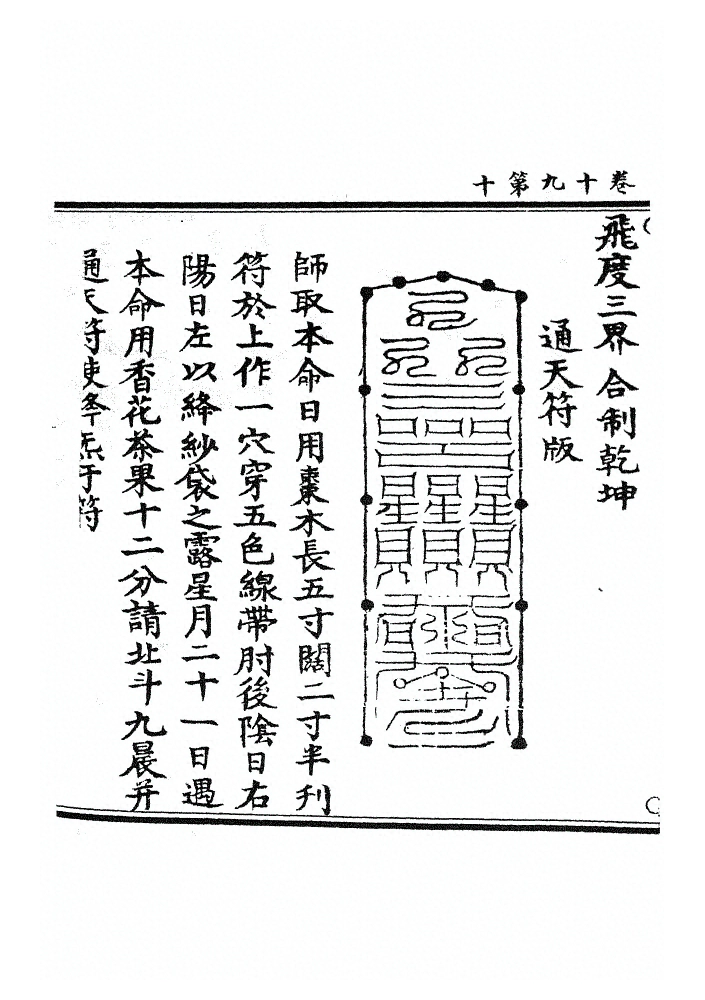 卷十九第十
飛度三界合制乾坤
通天符版
師取本命日用棗木長五寸闊二寸半刋
符於上作一穴穿五色線帶肘後陰日右
陽日左以絳紗袋之露星月二十一日遇
本命用香花茶果十二分請北斗九晨并
通天符使
炁于符